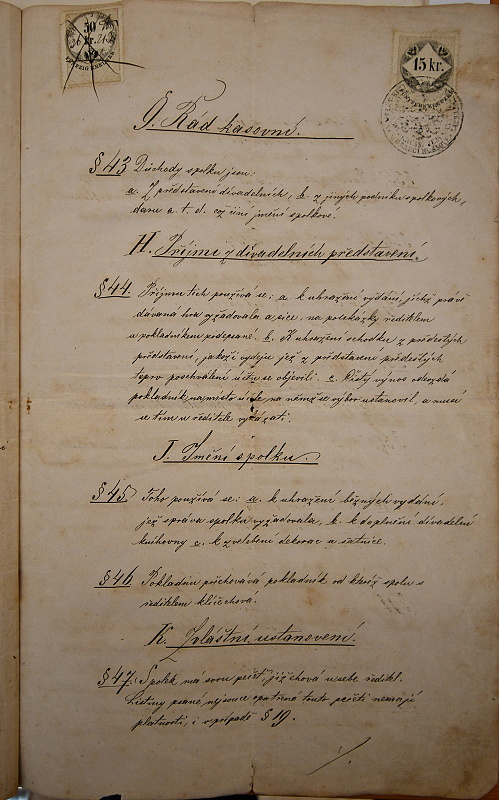 50
36 kr. 21
15 kr.
G. Řád kasovní.
§ 43 Důchody spolku jsou:
a. Z představení divadelních, b. z jiných podniků spolkových,
darů a. t. d. což činí jmění spolkové.
H. Příjmi z divadelních představení.
§ 44. Příjmu těch používá se: a. k uhražení vydání, jichž právě
dávaná hra vyžadovala a sice, na poukázky ředitelem
a pokladníkem podepsané. b. K uhražení schodku z předešlých
představení, jakož výdajů jež z představení předešlých
teprv po schválení účtu se objevili. c. Čistý výnos odevzdá
pokladník na místo na němž se výbor ustanovil, a musí
se tím u ředitele vykázati.
J. Jmění spolku.
§ 45 Toho používá se: a. k uhražení běžných vydání,
jež správa spolku vyžadovala, b. k doplnění divadelní
knihovny c. k zvelebení dekorac a šatnice.
§ 46. Pokladnu přechovává pokladník od ktréž spolu s
ředitelem klíče chová.
K. Zvláštní ustanovení.
§ 47. Spolek má svou pečeť, již chová u sebe ředitel.
Listiny psané nejsouce opatřené touto pečetí nemají
platnosti, i v případě § 19.